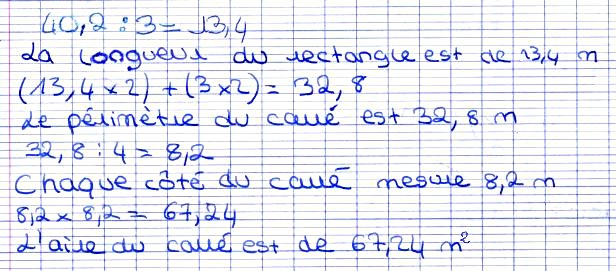 40,2 : 3 = 13,4
La longueur du rectangle est de 13,4 m
(13,4 × 2) + (3 × 2) = 32,8
Le périmètre du carré est 32,8 m
32,8 : 4 = 8,2
Chaque côté du carré mesure 8,2 m
8,2 × 8,2 = 67,24
L'aire du carré est de 67,24 m²